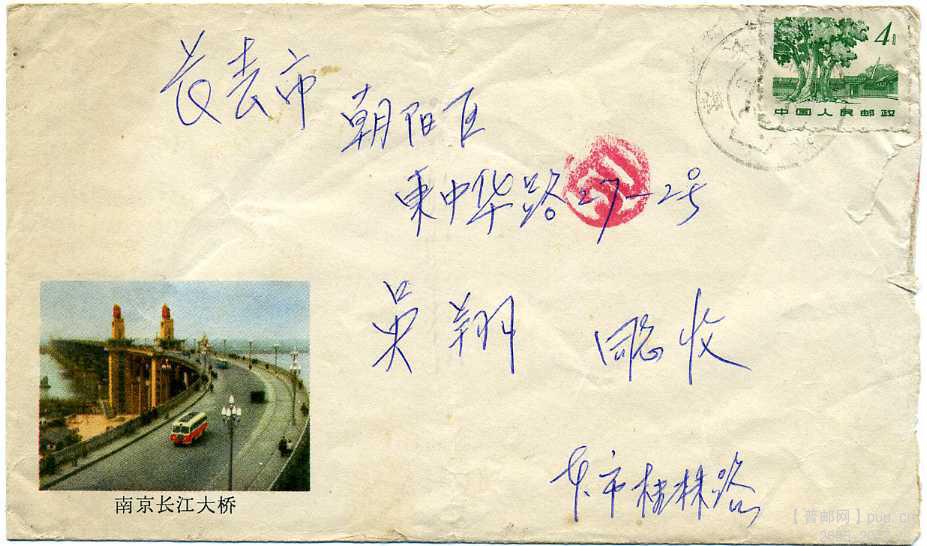 4分
中国人民邮政
长春市
朝阳区
東中华路27-2号
吴翔 同志收
本市桂林路
南京长江大桥
【普邮网】pup.cn